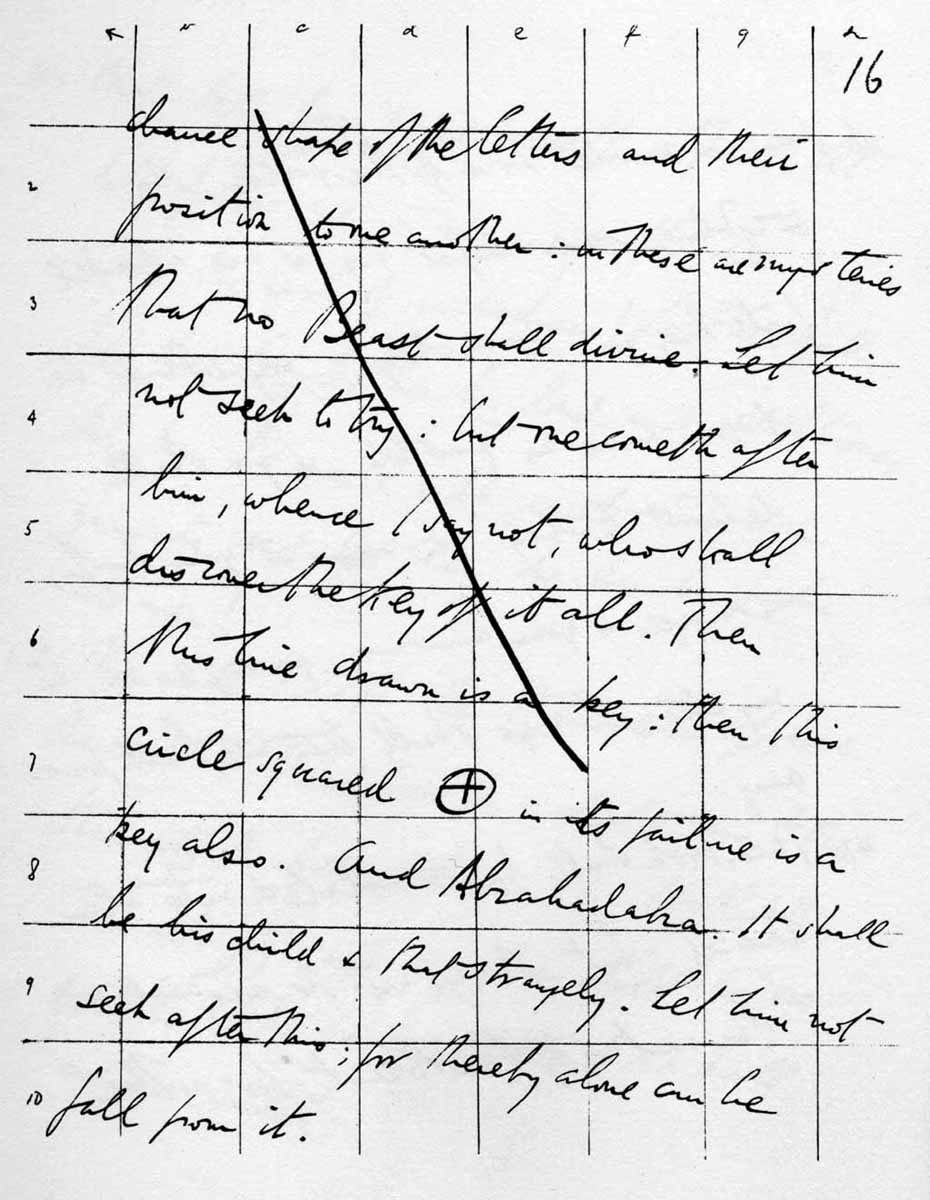 a b c d e f g h
16
chance shape of the letters and their
2
position to one another: in these are mysteries
3
that no Beast shall divine. Let him
4
not seek to try: but one cometh after
him, whence I say not, who shall
5
discover the key of it all. Then
6
this line drawn is a key: then this
7
circle squared in its failure is a
key also. And Abrahadabra. It shall
8
be his child & that strangely. Let him not
9
seek after this; for thereby alone can he
10
fall from it.